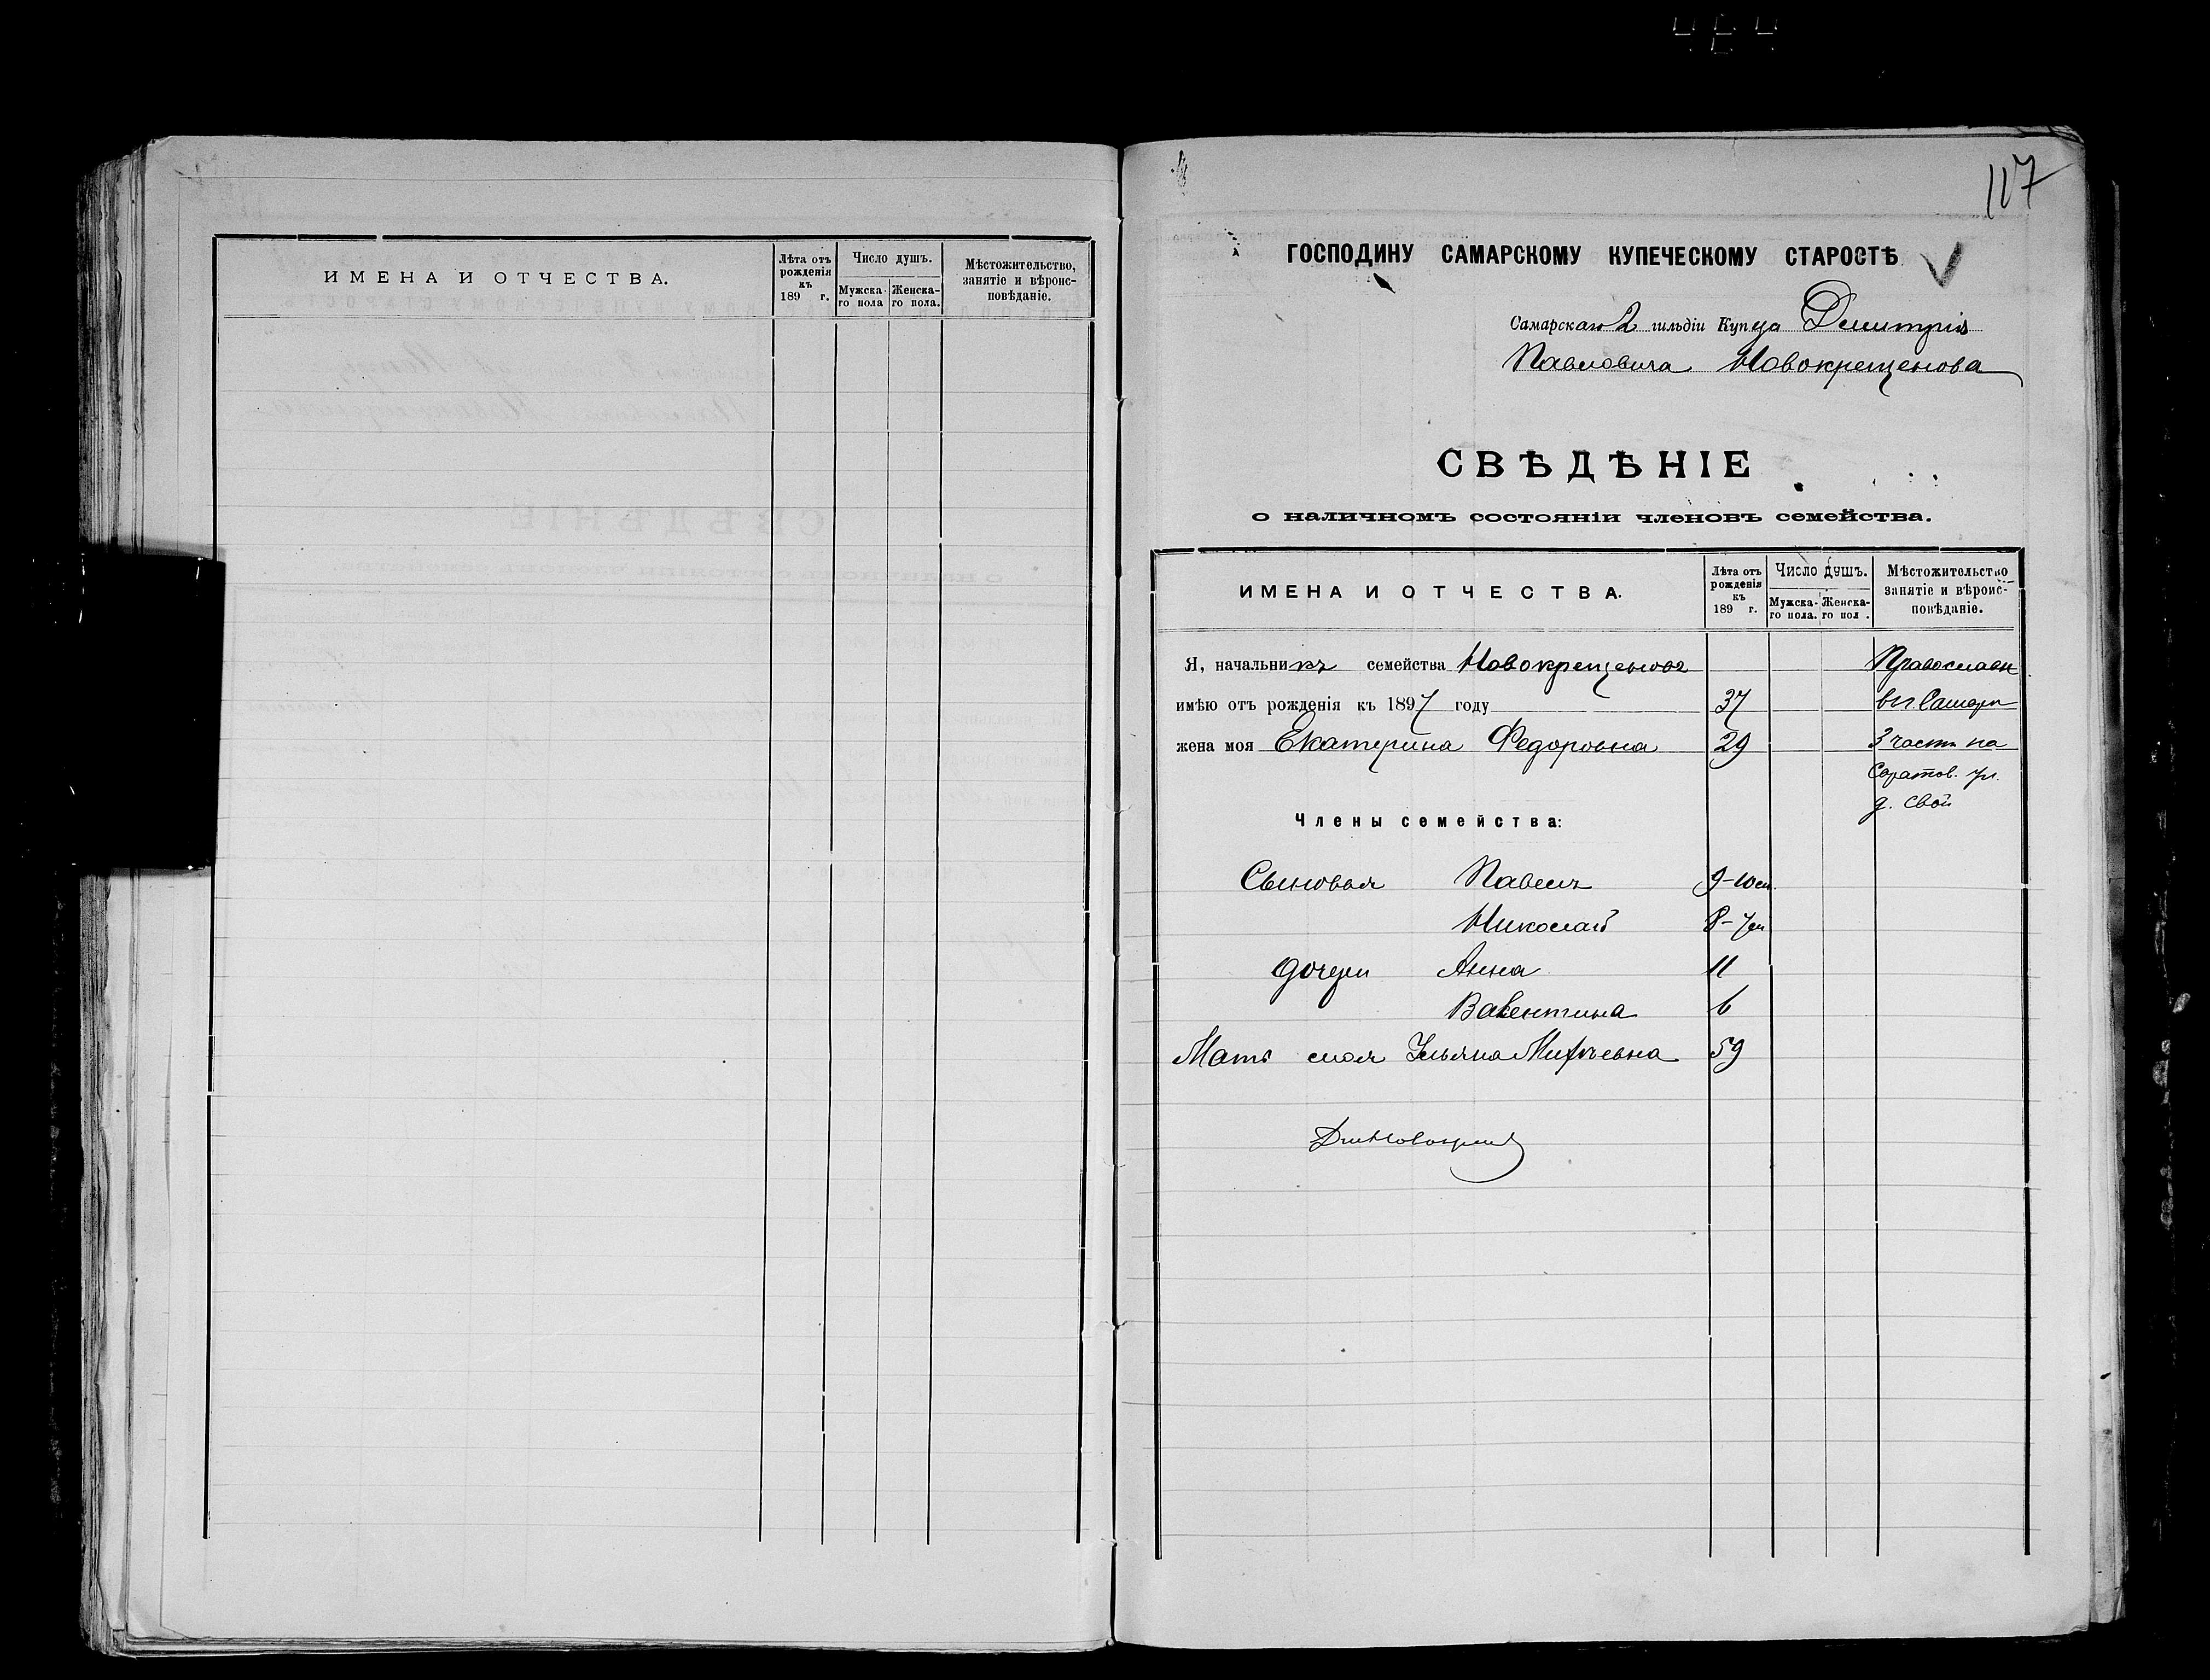 ИМЕНА И ОТЧЕСТВА.
Лѣта отъ рожденія къ 189 г.
Число душъ.
Мужска-го пола
Женска-го пола.
Мѣстожительство, занятіе и вѣроис-повѣданіе.
117
ГОСПОДИНУ САМАРСКОМУ КУПЕЧЕСКОМУ СТАРОСТѢ
Самарскаго 2 гильдіи Купца Дмитрія
Павловича Новокрещенова
СВѢДѢНІЕ
о наличномъ состояніи членовъ семейства.
ИМЕНА И ОТЧЕСТВА.
Лѣта отъ рожденія къ 189 г.
Число душъ.
Мужска-го пола.
Женска-го пол .
Мѣстожительство занятіе и вѣроис-повѣданіе.
Я, начальникъ семейства Православн
имѣю отъ рожденія къ 1897 году 37 въ г. Самарѣ
жена моя Екатерина Федоровна 29 3 части на
Саратов. ул.
д. свой
Члены семейства:
Сыновья Павелъ 9-10 м.
Николай 8-7 м
дочери Анна 11
Валентина 6
Мать моя Ульяна 59